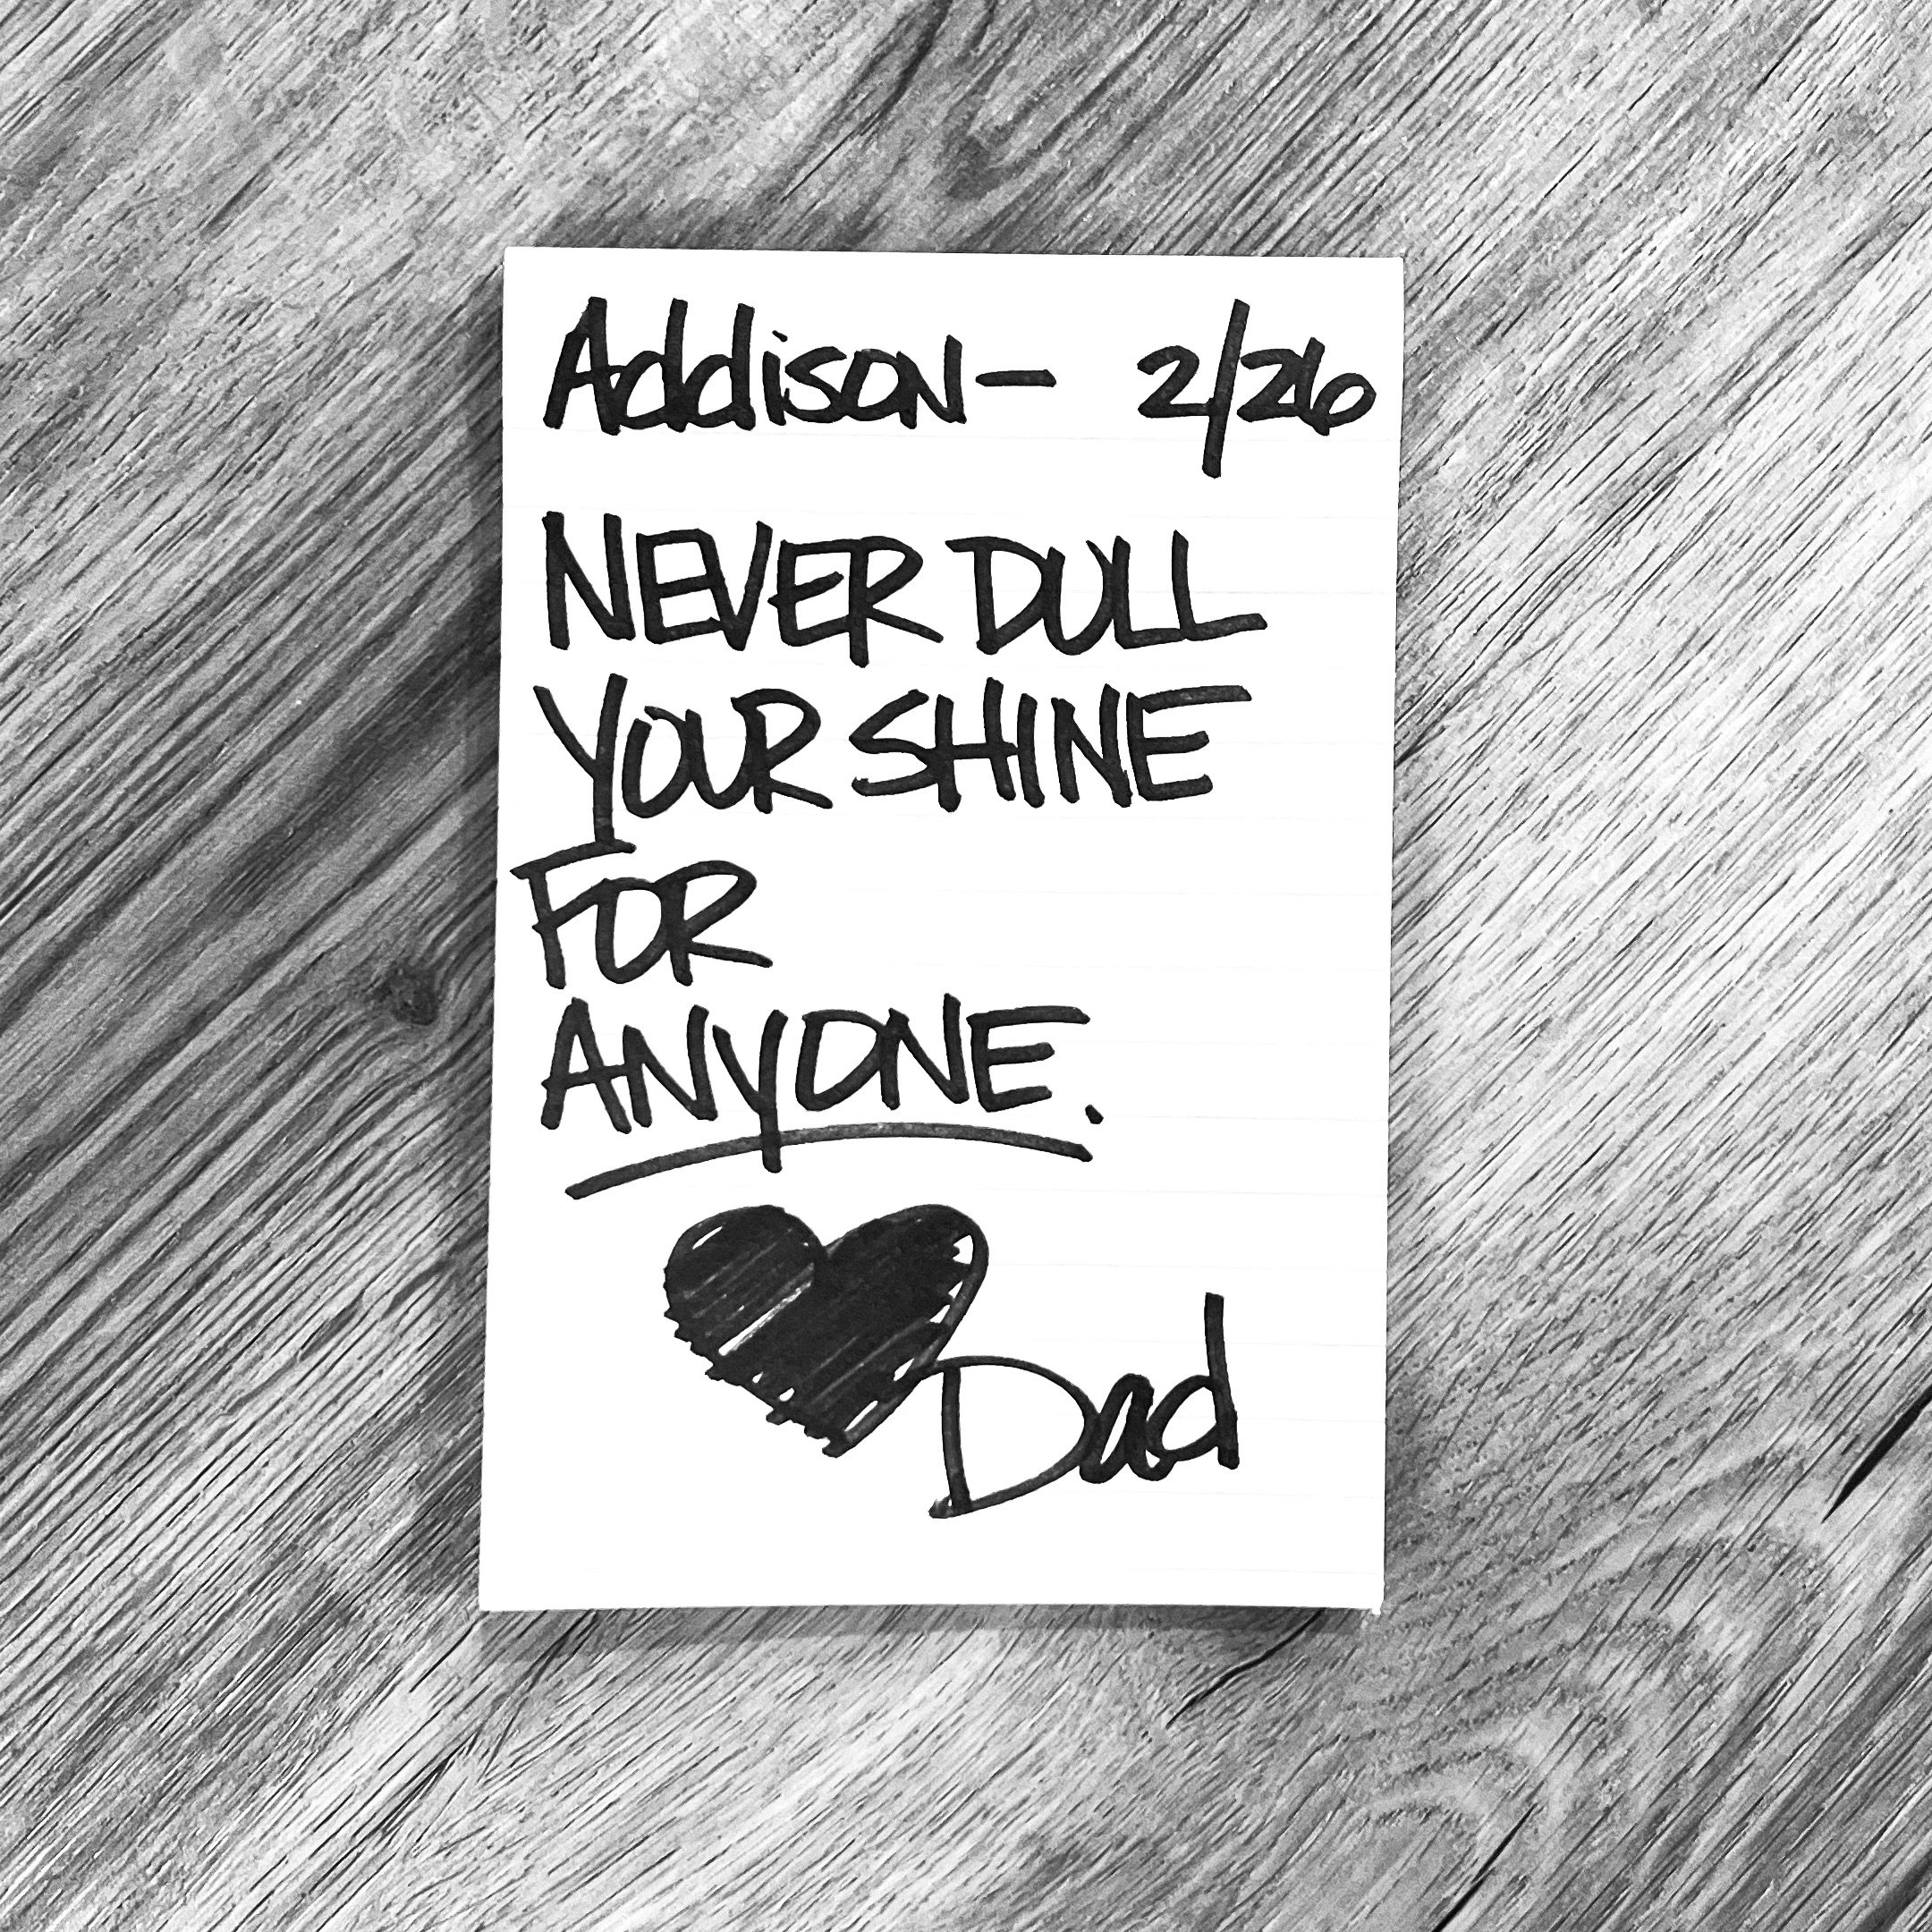 Addison— 2/26
NEVER DULL
YOUR SHINE
FOR
ANYONE.
Dad